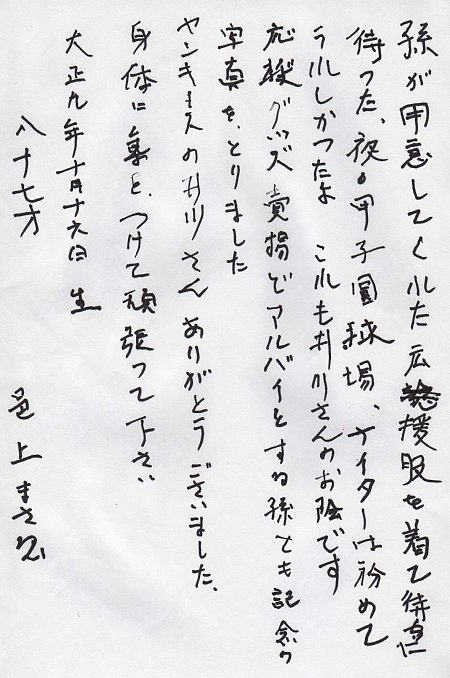 孫が用意してくれた応援服を着て待ちに
待った、夜の甲子園球場、ナイターは初めて
うれしかったよ これも井川さんのお陰です
応援グッズ売場でアルバイトする孫とも記念の
写真を、とりました
ヤンキースの井川さんありがとうございました。
身体に気を、つけて頑張って下さい
大正九年十月十六日生
八十七才
邑上まさ